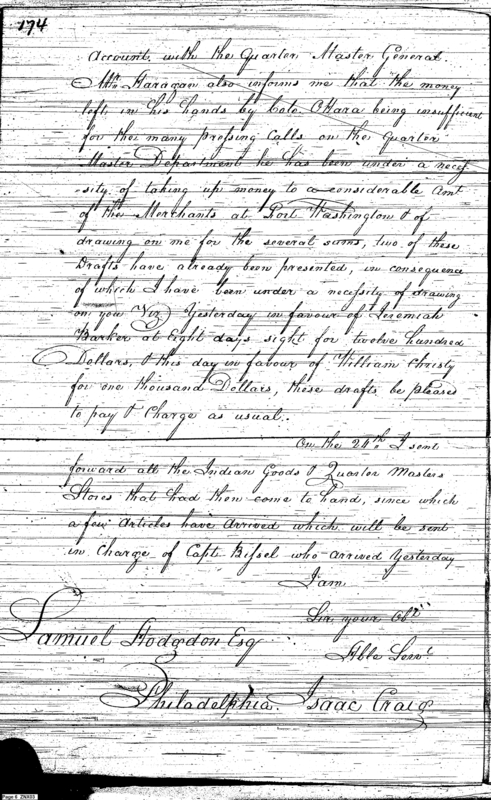 174
account with the Quarter Master General.
Mr. Haragan also informs me that the money
left in his hands by Colo. OHara being insufficient
for the many pressing Calls on the Quarter
Master Department he has been under a neces-
-sity of taking up money to a considerable Amt
of the Merchants at Fort Washington & of
drawing on me for the several sums, two of these
Drafts have already been presented, in consequence
of which I have been under a necessity of drawing
on you Viz Yesterday in favour of Jeremiah
Barker at Eight days sight for twelve hundred
Dollars, & this day in favour of William Christy
for one thousand Dollars, these drafts be pleased
to pay & Charge as usual.
On the 24th I sent
forward all the Indian Goods & Quarter Masters
Stores that had then come to hand, since which
a few Articles have arrived which will be sent
in Charge of Capt. Bissel who arrived Yesterday
I am
Sir, your Obt
Hble Servt
Samuel Hodgdon Esq
Philadelphia. Isaac Craig
Page 6 ZNX03